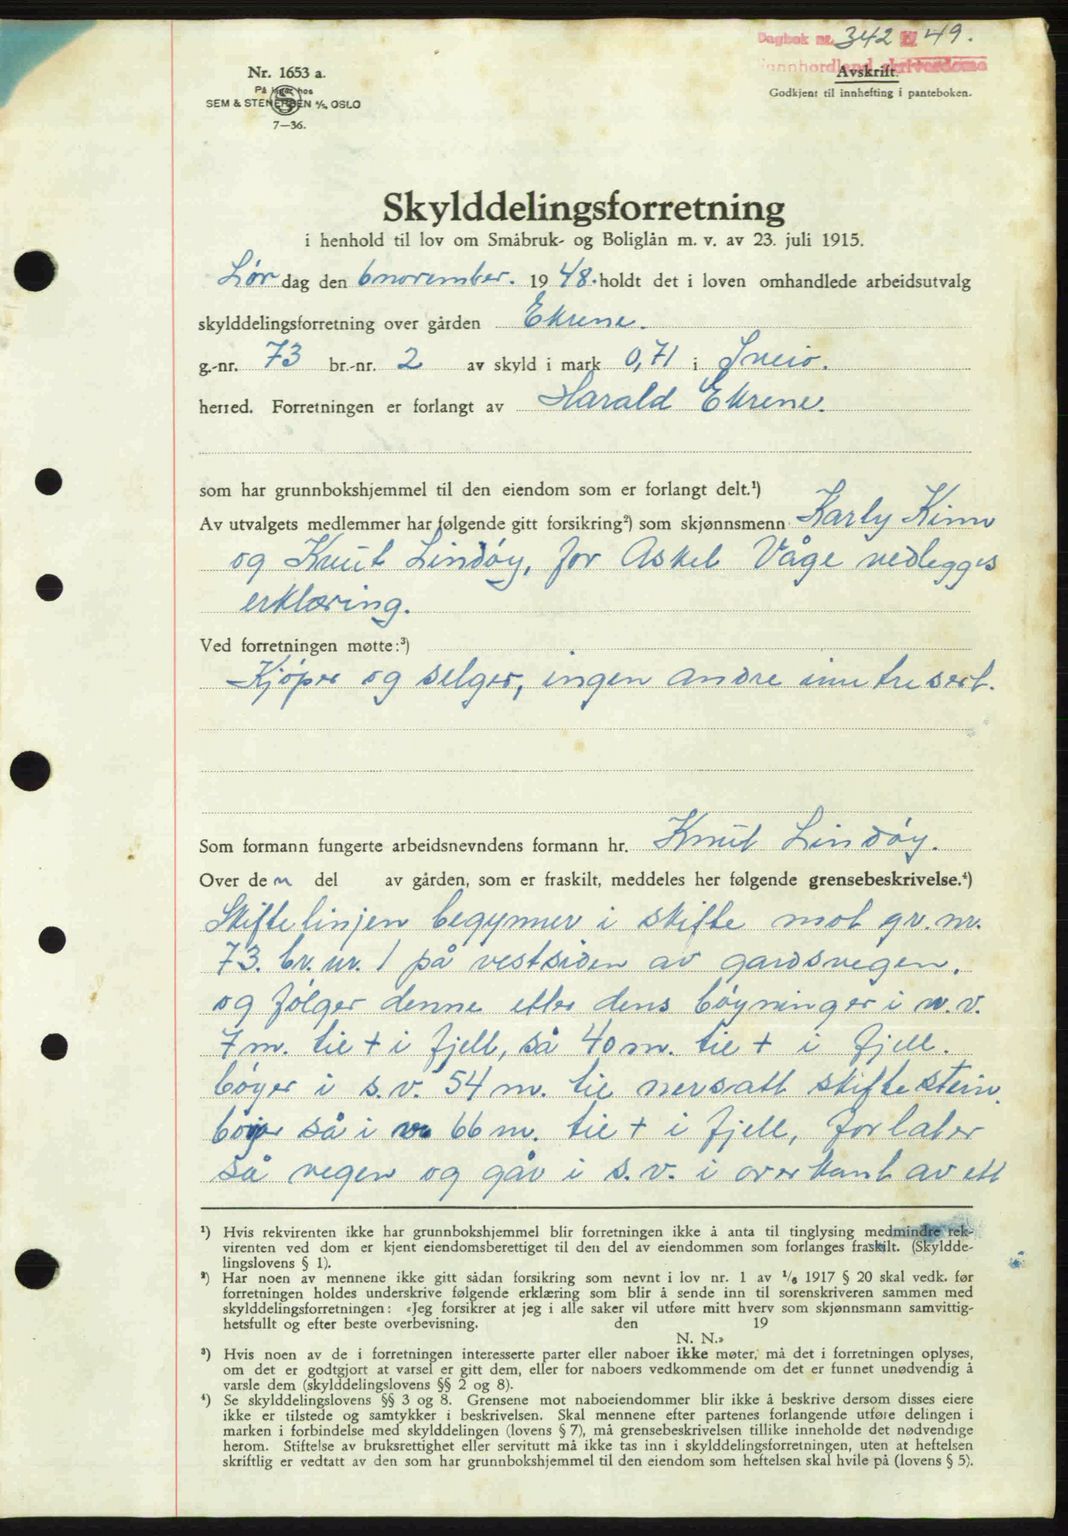 Dagbok nr. 342 19 49.
Sunnhordland skriverdøme
Avskrift.
Godkjent til innhefting i panteboken.
Nr. 1653 a.
På lager hos
SEM & STENERSEN A/S, OSLO
7—36.
Skylddelingsforretning
i henhold til lov om Småbruk- og Boliglån m. v. av 23. juli 1915.
Lør dag den 6 november. 19 48. holdt det i loven omhandlede arbeidsutvalg
skylddelingsforretning over gården Ekrene.
g.-nr. 73 br.-nr. 2 av skyld i mark 0,71 i Sveio.
herred. Forretningen er forlangt av Harald Ekrene.
som har grunnbokshjemmel til den eiendom som er forlangt delt.¹)
Av utvalgets medlemmer har følgende gitt forsikring²) som skjønnsmenn Karly Kinn
og Knut Lindöy, for Askel Våge vedlegges
erklæring.
Ved forretningen møtte:³)
Kjøper og selger, ingen andre inntresert.
Som formann fungerte arbeidsnevndens formann hr. Knut Lindöy.
Over den del av gården, som er fraskilt, meddeles her følgende grensebeskrivelse.⁴)
Skiftelinjen begynner i skifte mot gr. nr.
73. br. nr. 1 på vestsiden av gardsvegen.
og følger denne etter dens bøyninger i n.v.
7 m. til + i fjell, så 40 m. til + i fjell.
bøyer i s.v. 54 m. til nersatt skiftestein.
bøyer så i 66 m. til + i fjell, forlater
så vegen og går i s.v. i overkant av ett
¹) Hvis rekvirenten ikke har grunnbokshjemmel blir forretningen ikke å anta til tinglysing medmindre rek-
virenten ved dom er kjent eiendomsberettiget til den del av eiendommen som forlanges fraskilt. (Skyldde-
lingslovens § 1).
²) Har noen av mennene ikke gitt sådan forsikring som nevnt i lov nr. 1 av ¹/₆ 1917 § 20 skal vedk. før
forretningen holdes underskrive følgende erklæring som blir å sende inn til sorenskriveren sammen med
skylddelingsforretningen: «Jeg forsikrer at jeg i alle saker vil utføre mitt hverv som skjønnsmann samvittig-
hetsfullt og efter beste overbevisning. den 19
N. N.»
³) Hvis noen av de i forretningen interesserte parter eller naboer ikke møter, må det i forretningen oplyses,
om det er godtgjort at varsel er gitt dem, eller for naboers vedkommende om det er funnet unødvendig å
varsle dem (skylddelingslovens §§ 2 og 8).
⁴) Se skylddelingslovens §§ 3 og 8. Grensene mot naboeiendommer blir ikke å beskrive dersom disses eiere
ikke er tilstede og samtykker i beskrivelsen. Skal mennene efter partenes forlangende utføre delingen i
marken i forbindelse med skylddelingen (lovens § 7), må grensebeskrivelsen tillike inneholde det nødvendige
herom. Stiftelse av bruksrettighet eller servitutt må ikke tas inn i skylddelingsforretningen, uten at heftelsen
skriftlig er vedtatt av den som har grunnbokshjemmel til den eiendom som heftelsen skal hvile på (lovens § 5).